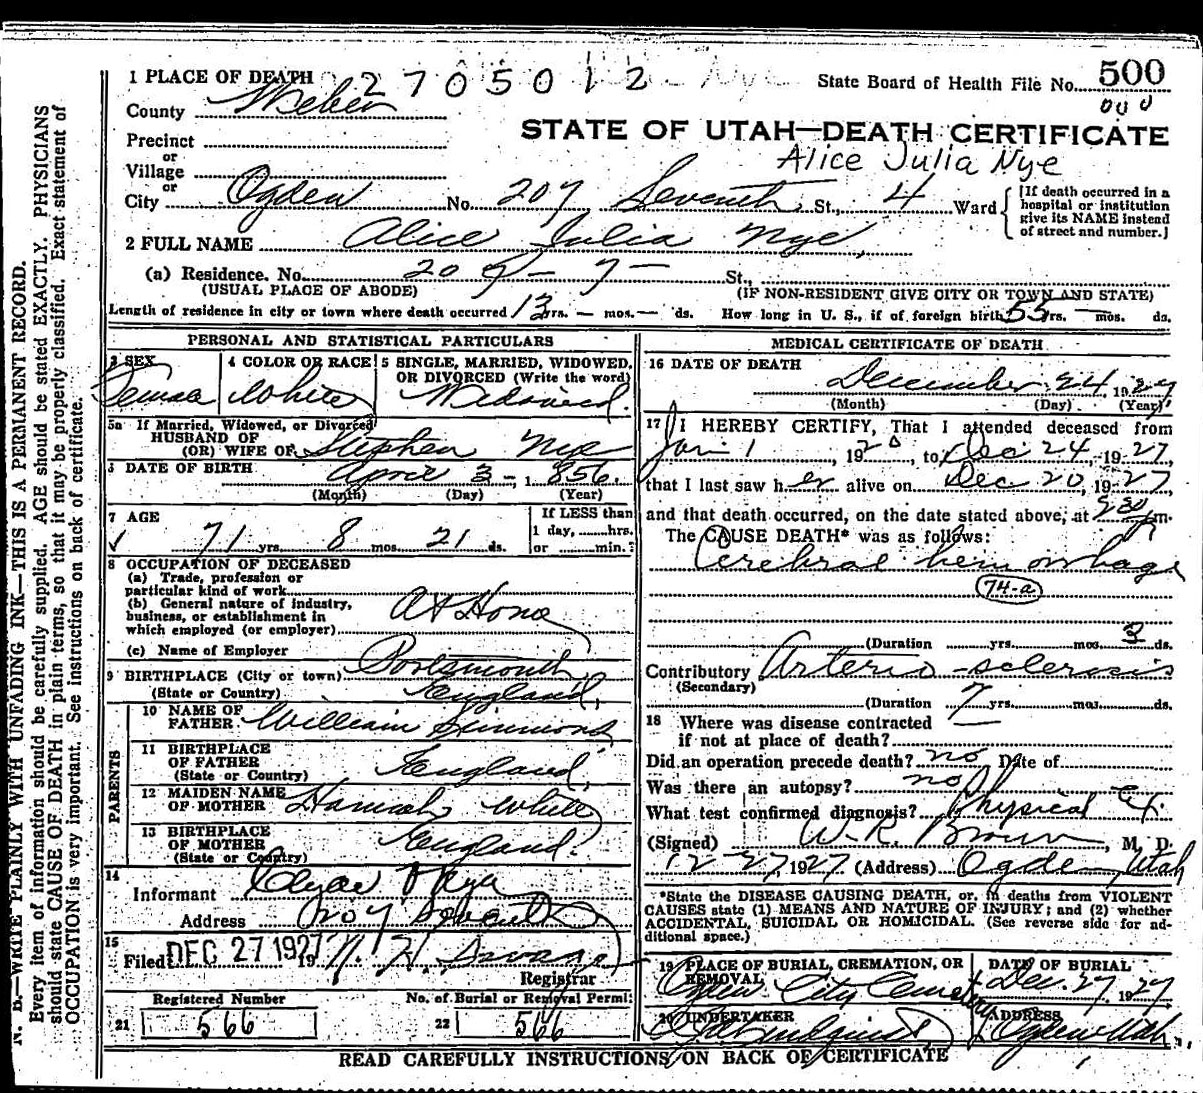 1 PLACE OF DEATH 2705012 Nye State Board of Health File No. 500
County Weber 000
STATE OF UTAH—DEATH CERTIFICATE
Precinct
or
Alice Julia Nye
Village
or
City Ogden No. 207 Seventh St., 4 Ward
[If death occurred in a
hospital or institution
give its NAME instead
of street and number.]
2 FULL NAME Alice Julia Nye
(a) Residence. No. 207 - 7 - St.,
(USUAL PLACE OF ABODE) (IF NON-RESIDENT GIVE CITY OR TOWN AND STATE)
Length of residence in city or town where death occurred 13 yrs. — mos. — ds. How long in U. S., if of foreign birth 55 yrs. — mos. ds.
PERSONAL AND STATISTICAL PARTICULARS
3 SEX 4 COLOR OR RACE 5 SINGLE, MARRIED, WIDOWED,
OR DIVORCED (Write the word)
Female White Widowed.
5a If Married, Widowed, or Divorced
HUSBAND OF
(OR) WIFE OF Stephen Nye
6 DATE OF BIRTH April 3 - 1856
(Month) (Day) (Year)
7 AGE If LESS than
1 day, hrs.
71 yrs. 8 mos. 21 ds. or min.
8 OCCUPATION OF DECEASED
(a) Trade, profession or
particular kind of work
(b) General nature of industry,
business, or establishment in
which employed (or employer) At Home
(c) Name of Employer
9 BIRTHPLACE (City or town) Portsmouth
(State or Country) England,
PARENTS
10 NAME OF
FATHER William Simmons
11 BIRTHPLACE
OF FATHER England,
(State or Country)
12 MAIDEN NAME
OF MOTHER Hannah White
13 BIRTHPLACE
OF MOTHER England.
(State or Country)
14
Informant Clyde Nye
Address 207 Seventh
15
Filed DEC 27 1927 19 Registrar
Registered Number No. of Burial or Removal Permit
21 566 22 566
MEDICAL CERTIFICATE OF DEATH
16 DATE OF DEATH
December 24 1927
(Month) (Day) (Year)
17 I HEREBY CERTIFY, That I attended deceased from
Jan 1, 1920, to Dec 24, 1927,
that I last saw her alive on Dec 20, 1927,
and that death occurred, on the date stated above, at 230 Pm.
The CAUSE DEATH* was as follows:
Cerebral hemorrhage
74-a
(Duration yrs. mos. 3 ds.
Contributory Arterio-sclerosis
(Secondary)
(Duration 7 yrs. mos. ds.
18 Where was disease contracted
if not at place of death? —
Did an operation precede death? no Date of
Was there an autopsy? no
What test confirmed diagnosis? Physical Ex.
(Signed) W. R. Brown, M. D.
12-27, 1927. (Address) Ogden, Utah
*State the DISEASE CAUSING DEATH, or, in deaths from VIOLENT
CAUSES state (1) MEANS AND NATURE OF INJURY; and (2) whether
ACCIDENTAL, SUICIDAL OR HOMICIDAL. (See reverse side for ad-
ditional space.)
19 PLACE OF BURIAL, CREMATION, OR DATE OF BURIAL
REMOVAL
Ogden City Cemetery Dec. 27, 1927
20 UNDERTAKER ADDRESS
Ogden Utah.
READ CAREFULLY INSTRUCTIONS ON BACK OF CERTIFICATE
N. B.—WRITE PLAINLY WITH UNFADING INK—THIS IS A PERMANENT RECORD.
Every item of information should be carefully supplied. AGE should be stated EXACTLY. PHYSICIANS
should state CAUSE OF DEATH in plain terms, so that it may be properly classified. Exact statement of
OCCUPATION is very important. See instructions on back of certificate.